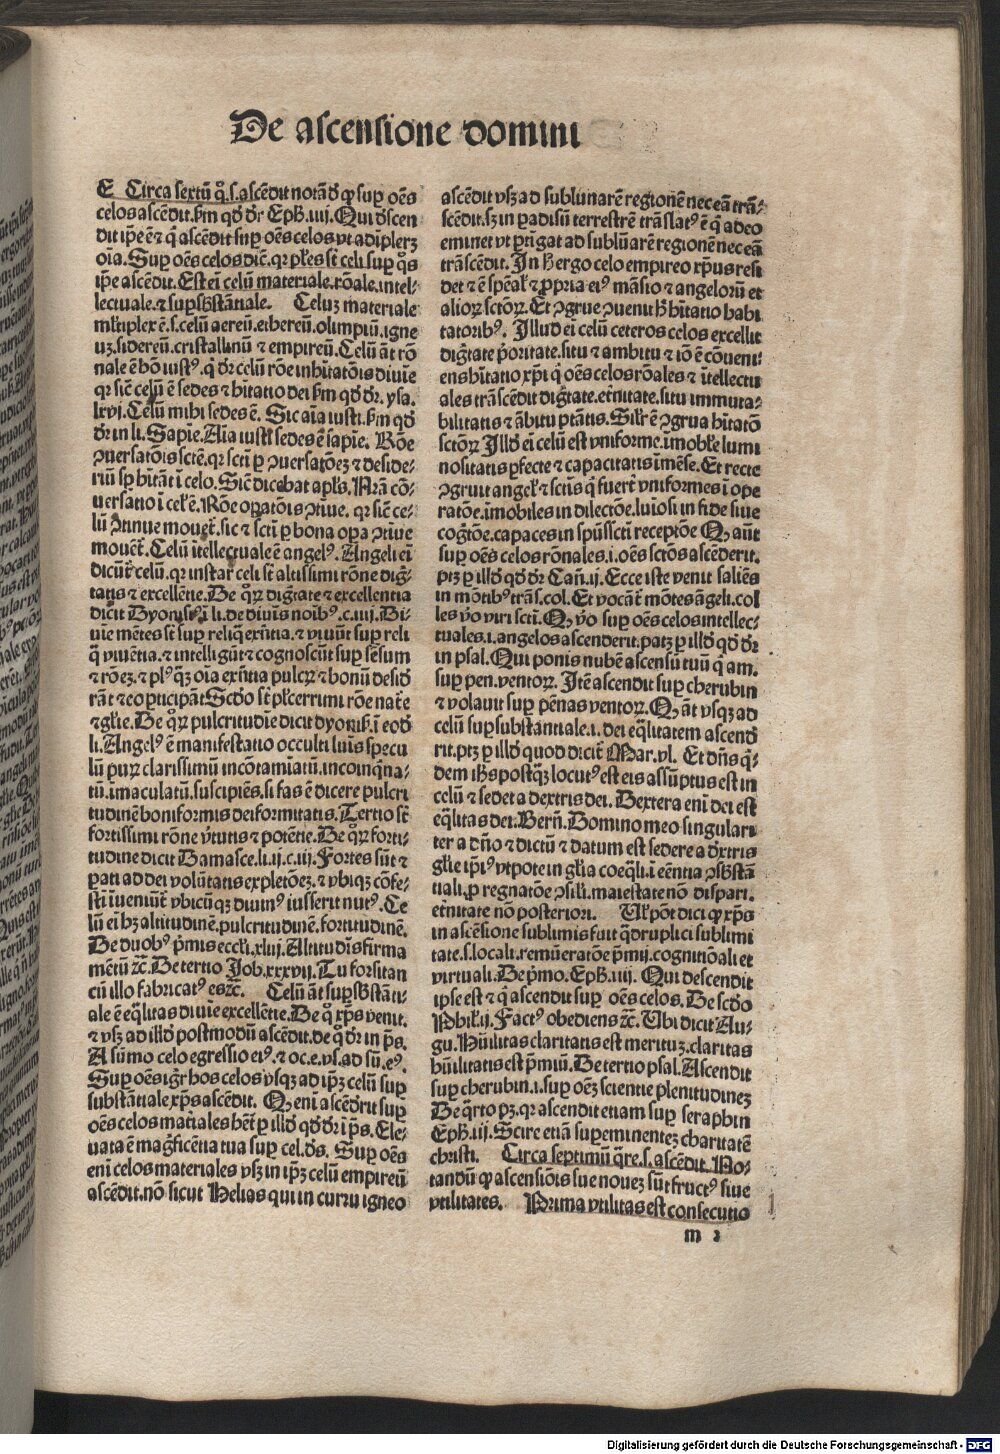 De ascensione domini
E Circa sextū qͦ.s.ascēdit notādͫ ꝙ suꝑ oēs
celos ascēdit.ẜm qd̄ dr̄ Eph̄.iiij.Qui dscen
dit ip̄e ē ⁊ q̄ ascēdit suꝑ oēs celos vt adīplerꝫ
oīa.Suꝑ oēs celos dic̄.qꝛ pl̄es st̄ celi suꝑ qͦs
ip̄e ascēdit.Est eī celū materiale.rōale.intel⸗
lectuale.⁊ suꝑsb̄stātiale. Celuꝫ materiale
ml̄tiplex ē.s.celū aereū.ethereū.olimpiū.igne
uꝫ.sidereū.cristallinū ⁊ empireū.Celū āt rō
nale ē hō iustꝰ.q̄ dr̄ celū rōe inhītatōis diuīe
qꝛ sic̄ celū ē sedes ⁊ hītatio dei ẜm qd̄ dr̄.ysa.
lxvj.Celū mihi sedes ē. Sic aīa iusti.ẜm qd̄
dr̄ in li.Sapīe.Aīa iusti sedes ē sapīe. Rōe
ꝯuersatōis sctē.qꝛ scti ꝑ ꝯuersatōeꝫ ⁊ deside⸗
riū sꝑ hītāt ī celo.Sic̄ dicebat apl̄s.Nr̄a cō⸗
uersatio ī cel̄ ē.Rōe oꝑatōis ꝯtīue. qꝛ sic̄ ce⸗
lū ꝯtinue mouet̄.sic ⁊ scti ꝑ bona oꝑa ꝯtīue
mouēt̄.Celū ītellectuale ē angelꝰ. Angeli eī
dicūt̄ celū.qꝛ instar celi st̄ altissimi rōne diḡ⸗
tatis ⁊ excellētie.De qͦꝝ diḡtate ⁊ excellentia
dicit Dyonisiꝰ ī li.de diuīs noībꝰ.c.iiij.Di⸗
uīe mētes st̄ suꝑ reliq̄ exn̄tia.⁊ viuūt suꝑ reli
q̄ viuētia.⁊ intelligūt ⁊ cognoscūt suꝑ sēsum
⁊ rōeꝫ.⁊ plꝰ qꝫ oīa exn̄tia pulcꝝ ⁊ bonū desid̄
rāt ⁊ eo ꝑticipāt Scd̄o st̄ pl̄cerrimi rōe nat̄e
⁊ gl̄ie.De qͦꝝ pulcritudīe dicit dyonis̄.ī eod̄
li.Angelꝰ ē manifestatio occulti luīs specu
lū puꝝ clarissimū incōtamīatū.incoinq̄na⸗
tū.imaculatū.suscipiēs.si fas ē dicere pulcri
tudinē boniformis deiformitatis.Tertio st̄
fortissimi rōne v̄tutis ⁊ potētie.De qͦꝝ forti⸗
tudine dicit Damasce.li.ij.c.iij.Fortes sūt ⁊
ꝑati ad dei volūtatis expletōeꝫ.⁊ vbiqꝫ cōfe⸗
stī īueniūt̄ vbicūqꝫ diuinꝰ iusserit nutꝰ.Ce
lū eī hꝫ altitudinē.pulcritudinē.fortitudinē.
De duobꝰ p̄mis eccl̄i.xliij.Altitudīs firma
mētū ⁊c̄.De tertio Job.xxxvij.Tu forsitan
cū illo fabricatꝰ es⁊c̄. Celū āt suꝑsb̄stāti⸗
ale ē eq̄litas diuīe excellētie.De qͦ xp̄s venit.
⁊ vsqꝫ ad illd̄ postmodū ascēdit.de qͦ dr̄ in p̄s.
A sūmo celo egressio eiꝰ.⁊ oc.e.vs.ad sū.eꝰ.
Suꝑ oēs igr̄ hos celos vsqꝫ ad ip̄ꝫ celū suꝑ
substātiale xp̄s ascēdit. Qꝫ eni ascēdrit suꝑ
oēs celos matiales het̄ ꝑ illd̄ qd̄ dr̄ ī p̄s.Ele⸗
uata ē mag̈ficētia tua suꝑ cel.ds̄. Suꝑ oēs
eni celos materiales vsqꝫ in ip̄ꝫ celū empireū
ascēdit.nō sicut Helias qui in curru igneo
ascēdit vsqꝫ ad sublunarē regionē nec eā trā⸗
scēdit.sꝫ in padisū terrestrē trāslatꝰ ē q̄ adeo
eminet vt ꝑtīgat ad sublūarē regionē nec eā
trāscēdit. In h̄ ergo celo empireo xp̄us resi
det ⁊ ē spēal̄ ⁊ ꝓpria eiꝰ māsio ⁊ angelorū et
alioꝝ sctōꝝ.Et ꝯgrue ꝯuenit h̄ hītatio habi
tatoribꝰ. Illud eī celū ceteros celos excellit
dig̈tate p̄oritate.situ ⁊ ambitu ⁊ iō ē cōueni⸗
ens hītatio xp̄i q̄ oēs celos rōales ⁊ ītellectu
ales trāscēdit dig̈tate.et̄nitate.situ immuta⸗
bilitatis ⁊ ābitu ptātis.Sil̄r ē ꝯgrua hītatō
sctōꝝ Illd̄ eī celū est vniforme.īmobl̄e lumi
nositatis ꝑfecte ⁊ capacitatis īmēse.Et recte
ꝯgruit angel̄ ⁊ sctis q̄ fuert̄ vniformes ī oꝑe
ratōe.īmobiles in dilectōe.luīosi in fide siue
cog̈tōe.capaces in spūssct̄i receptōe Qꝫ aūt
suꝑ oēs celos rōnales.i.oēs sctōs ascēderit.
ptꝫ ꝑ illd̄ qd̄ dr̄ Cañ.ij.Ecce iste venit saliēs
in mōtibꝰ trās.col.Et vocāt̄ mōtes āgeli.col
les v̄o viri scti.Qꝫ v̄o suꝑ oēs celos intellec⸗
tuales.i.angelos ascenderit.patꝫ ꝑ illd̄ qd̄ dr̄
in psal.Qui ponis nubē ascensū tuū q̄ am.
suꝑ pen.ventoꝝ. Itē ascendit suꝑ cherubin
⁊ volauit suꝑ pēnas ventoꝝ.Qꝫ āt vsqꝫ ad
celū suꝑsubstantiale.i.dei eq̄litatem ascend̄
rit.ptꝫ ꝑ illd̄ quod dicit̄ Mar.vl. Et dn̄s q̄⸗
dem ih̄s postqꝫ locutꝰ est eis assūptus est in
celū ⁊ sedet a dextris dei.Dextera eni dei est
eq̄litas dei.Berñ.Domino meo singulari
ter a dn̄o ⁊ dictū ⁊ datum est sedere a dx̄tris
gl̄ie ip̄iꝰ vtpote in gl̄ia coeq̄li.ī eēntia ꝯsb̄stā
tiali.ꝓ regnatōe ꝯsil̄i.maiestate nō dispari.
et̄nitate nō posteriori. Ul̄ pōt dici ꝙ xp̄s
in ascēsione sublimis fuit q̄druplici sublimi
tate.s.locali.remūeratōe p̄mij.cognitiōali et
virtuali.De p̄mo.Eph̄.iiij. Qui descendit
ipse est ⁊ q̄ ascendit suꝑ oēs celos.De scd̄o
Phil̄.ij.Factꝰ obediens ⁊c̄.Ubi dicit Au⸗
gu.Hūilitas claritatis est merituꝫ.claritas
hūilitatis est p̄miū.De tertio psal.Ascendit
suꝑ cherubin.i.suꝑ oēꝫ scientie plenitudineꝫ
De q̄rto pꝫ.qꝛ ascendit etiam suꝑ seraphin
Eph̄.iij.Scire etiā suꝑeminenteꝫ charitatē
christi. Circa septimū q̄re.s.ascēdit.No⸗
tandū ꝙ ascensiōis sue noueꝫ sūt fructꝰ siue
vtilitates. Prima vtilitas est consecutio
m 1
Digitalisierung gefördert durch die Deutsche Forschungsgemeinschaft - DFG